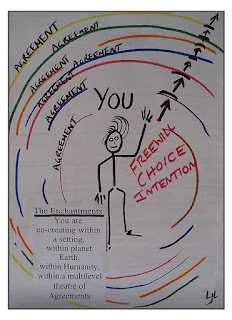 AGREEMENT
AGREEMENT
AGREEMENT
AGREEMENT
AGREEMENT
AGREEMENT
YOU
FREEWILL
CHOICE
INTENTION
The Enchantments
You are
co-creating within
a setting,
within planet
Earth,
within Humanity,
within a multilevel
theatre of
Agreements